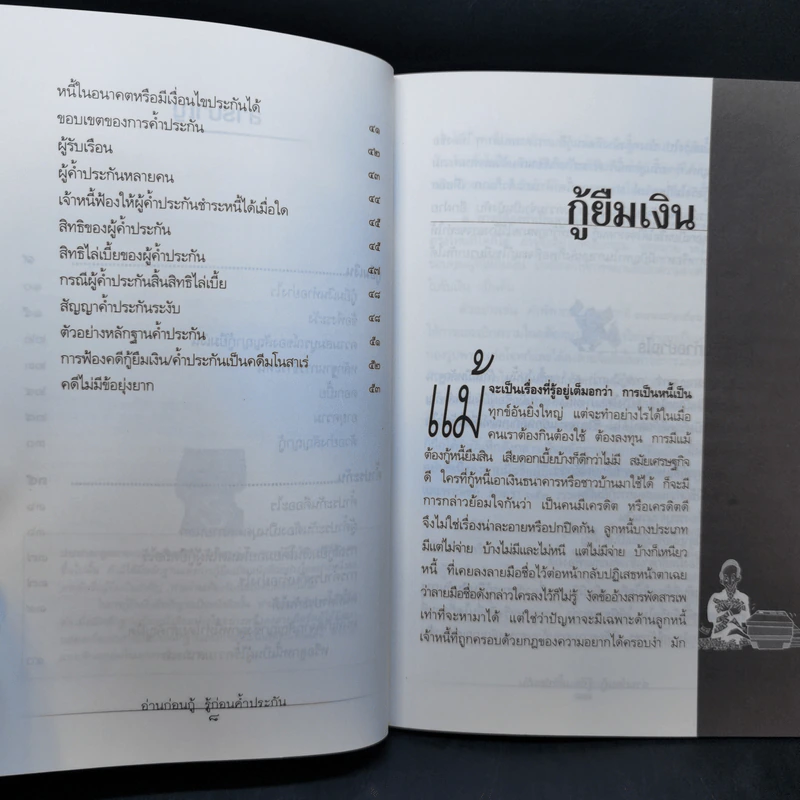 หนี้ในอนาคตหรือมีเงื่อนไขประกันได้
ขอบเขตของการค้ำประกัน ๔๑
ผู้รับเรือน ๔๒
ผู้ค้ำประกันหลายคน ๔๓
เจ้าหนี้ฟ้องให้ผู้ค้ำประกันชำระหนี้ได้เมื่อใด ๔๔
สิทธิของผู้ค้ำประกัน ๔๕
สิทธิไล่เบี้ยของผู้ค้ำประกัน ๔๕
กรณีผู้ค้ำประกันสิ้นสิทธิไล่เบี้ย ๔๗
สัญญาค้ำประกันระงับ ๔๘
ตัวอย่างหลักฐานค้ำประกัน ๔๘
การฟ้องคดีกู้ยืมเงิน/ค้ำประกันเป็นคดีมโนสาเร่ ๕๑
คดีไม่มีข้อยุ่งยาก ๕๒
๕๓
อ่านก่อนกู้ รู้ก่อนค้ำประกัน
๘
กู้ยืมเงิน
แม้ จะเป็นเรื่องที่รู้อยู่เต็มอกว่า การเป็นหนี้เป็น
ทุกข์อันยิ่งใหญ่ แต่จะทำอย่างไรได้ในเมื่อ
คนเราต้องกินต้องใช้ ต้องลงทุน การมีแม้
ต้องกู้หนี้ยืมสิน เสียดอกเบี้ยบ้างก็ดีกว่าไม่มี สมัยเศรษฐกิจ
ดี ใครที่กู้หนี้เอาเงินธนาคารหรือชาวบ้านมาใช้ได้ ก็จะมี
การกล่าวย้อมใจกันว่า เป็นคนมีเครดิต หรือเครดิตดี
จึงไม่ใช่เรื่องน่าละอายหรือปกปิดกัน ลูกหนี้บางประเภท
มีแต่ไม่จ่าย บ้างไม่มีและไม่หนี แต่ไม่มีจ่าย บ้างก็เหนียว
หนี้ ที่เคยลงลายมือชื่อไว้ต่อหน้ากลับปฏิเสธหน้าตาเฉย
ว่าลายมือชื่อดังกล่าวใครลงไว้ก็ไม่รู้ งัดข้ออ้างสารพัดสารเพ
เท่าที่จะหามาได้ แต่ใช่ว่าปัญหาจะมีเฉพาะด้านลูกหนี้
เจ้าหนี้ที่ถูกครอบด้วยกฎของความอยากได้ครอบงำ มัก